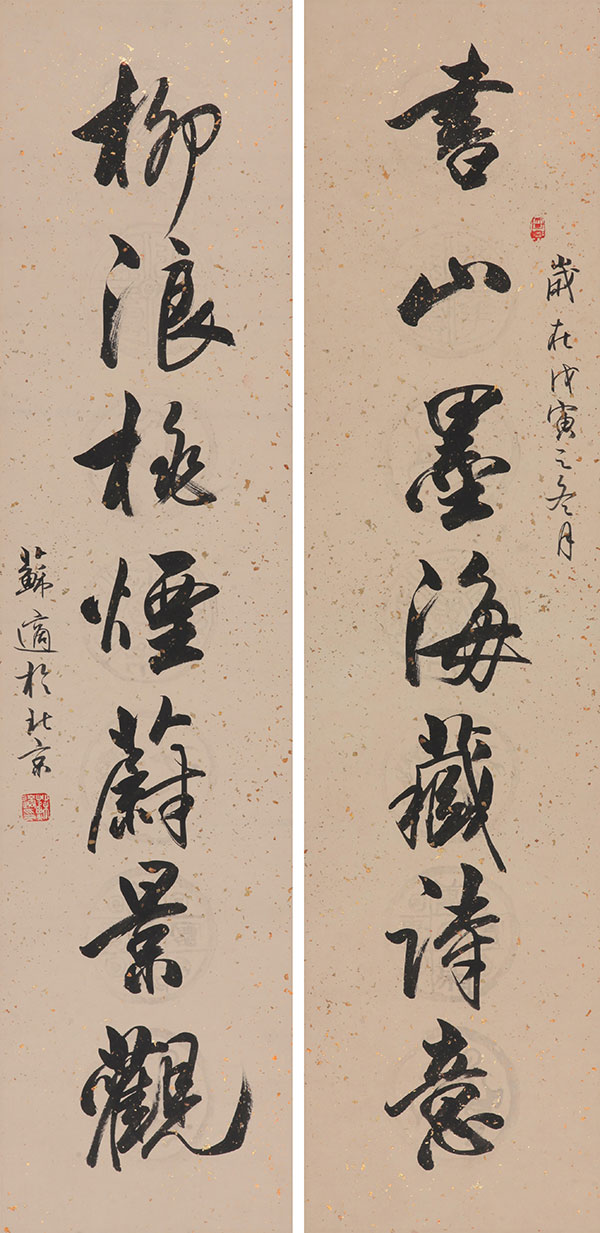 書山墨海藏詩意
歲在戊寅之冬月
柳浪桃煙蔚景觀
蘇適於北京